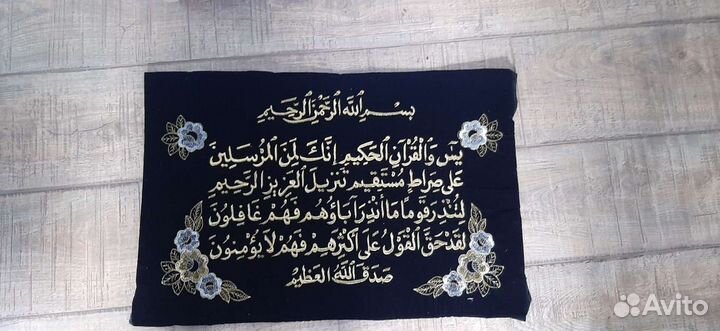 بسم الله الرحمن الرحيم
يس والقرآن الحكيم إنك لمن المرسلين
على صراط مستقيم تنزيل العزيز الرحيم
لتنذر قوما ما أنذر آباؤهم فهم غافلون
لقد حق القول على أكثرهم فهم لا يؤمنون
صدق الله العظيم
Avito